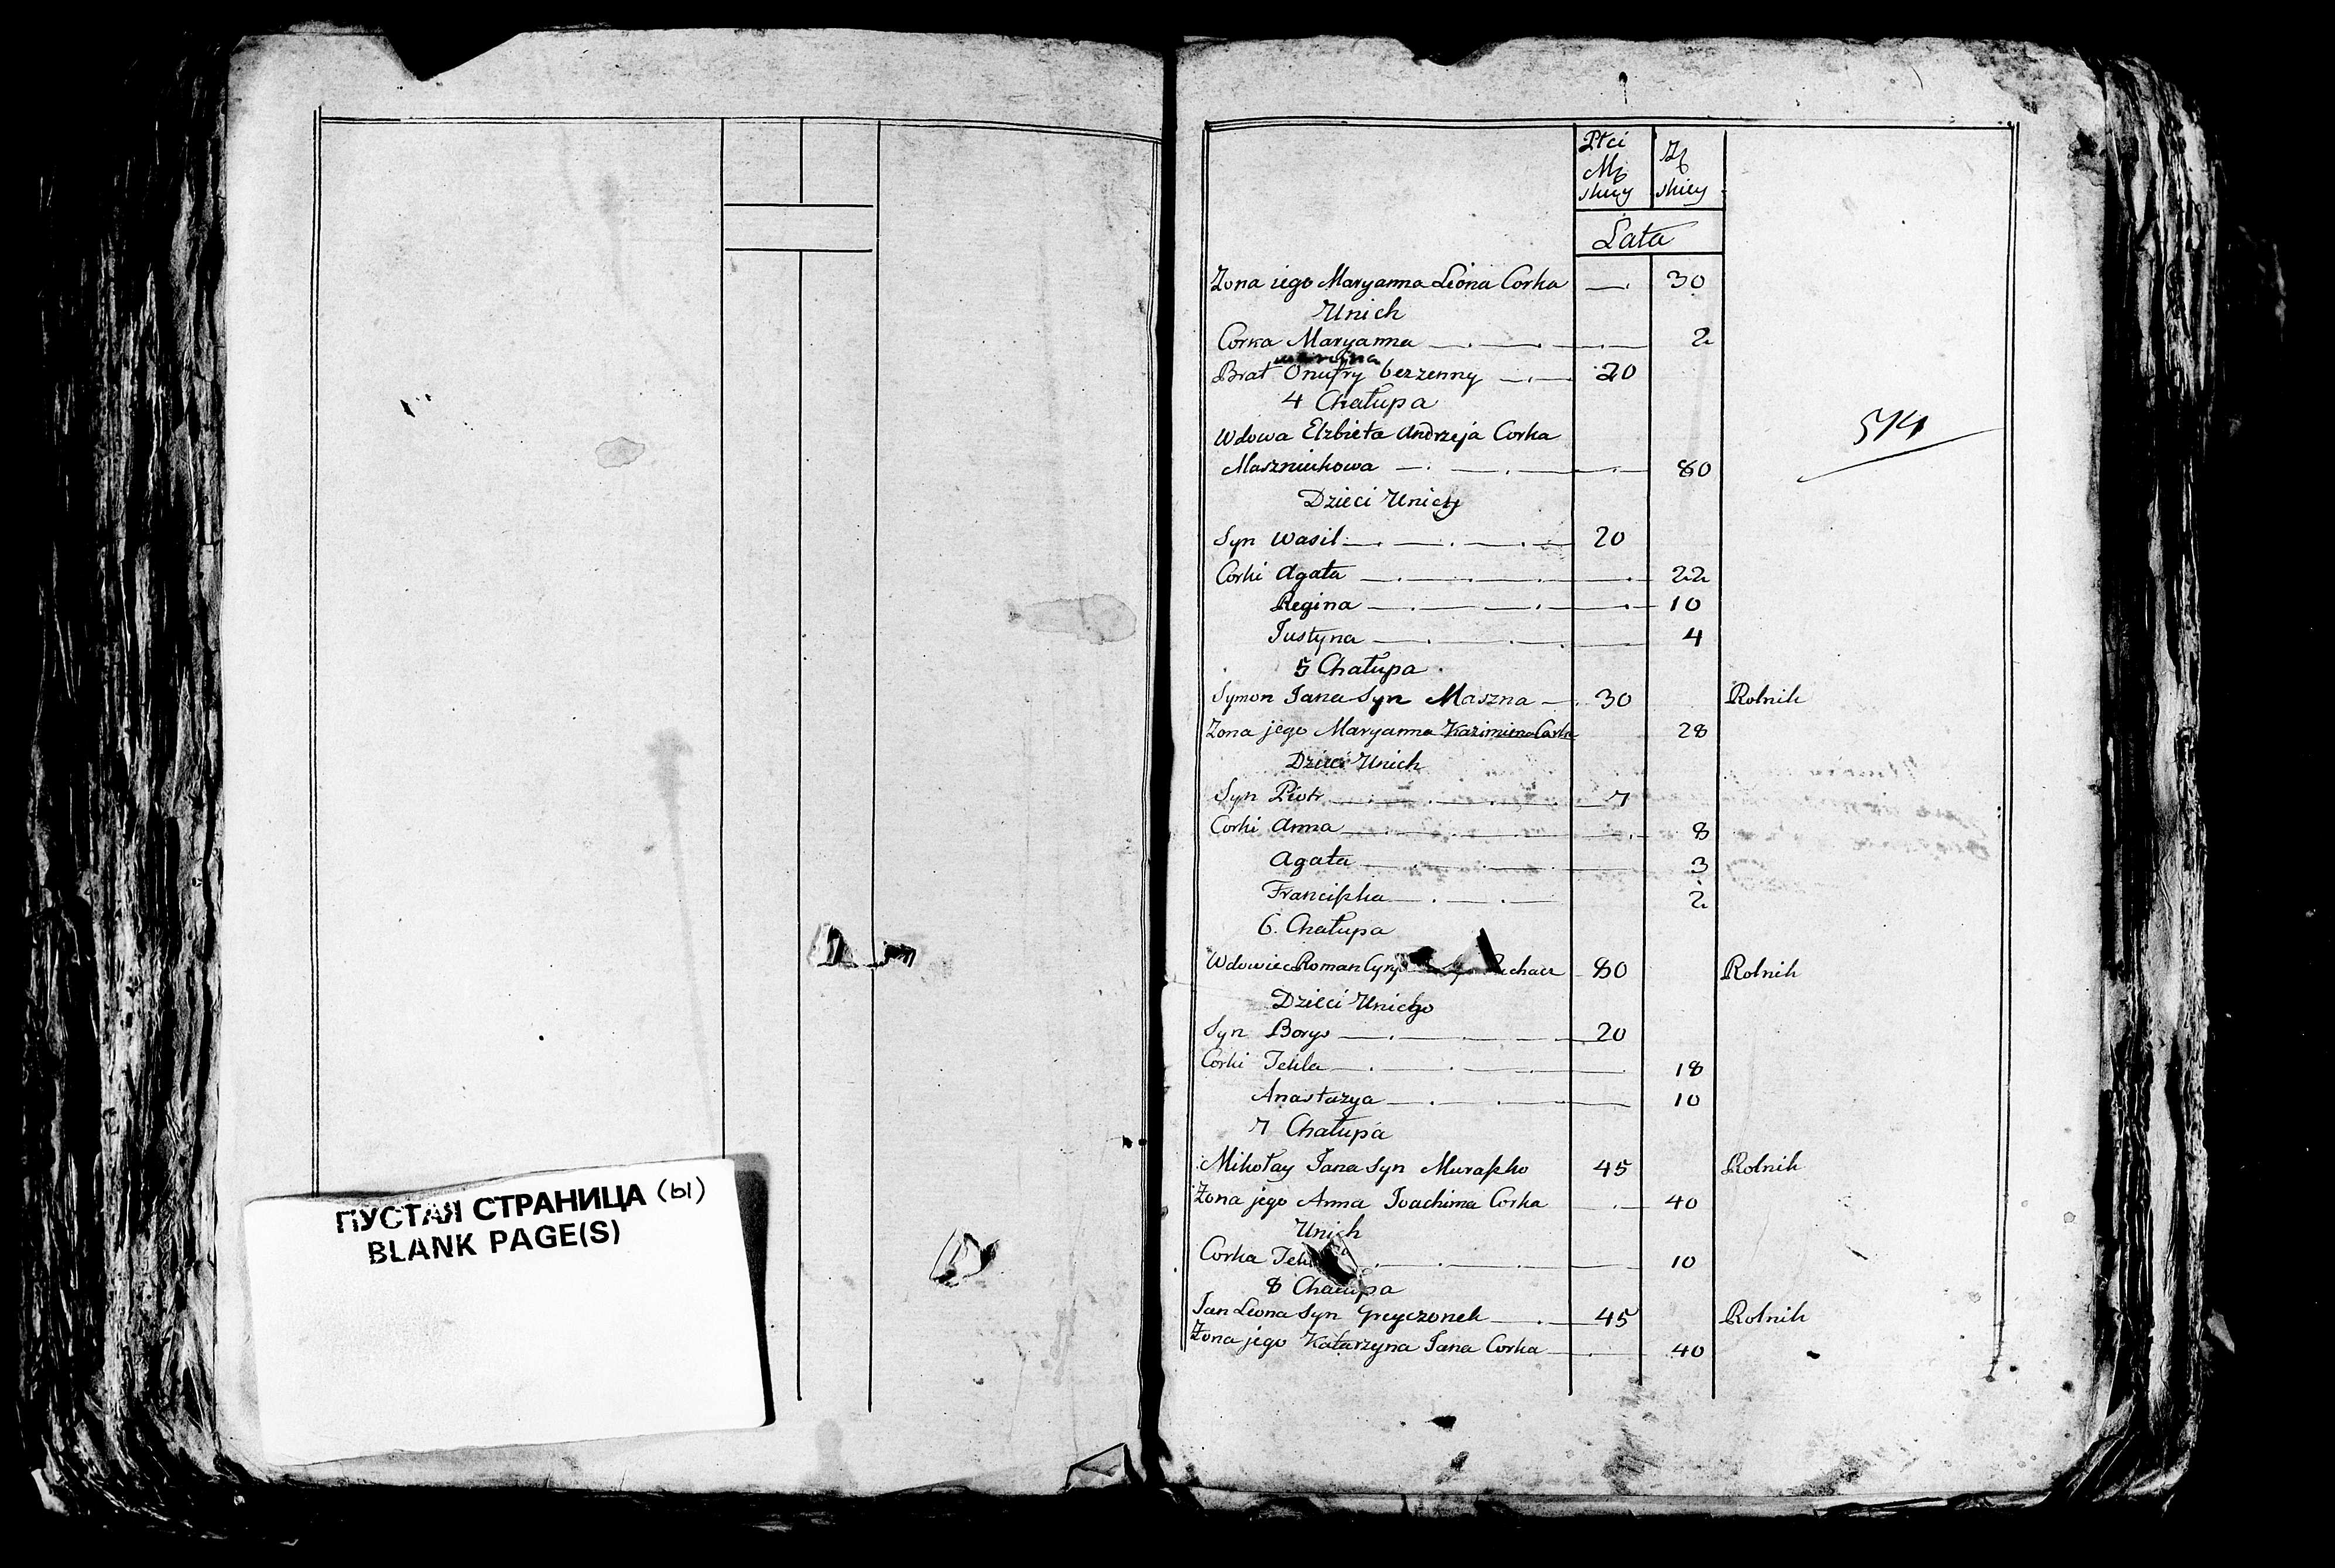 ПУСТАЯ СТРАНИЦА (ы)
BLANK PAGE(S)
Płci Mę skiey
Zę skiey
Lata
574
Zona iego Maryanna Leona Corka — 30
Unich
Corka Maryanna 2
Brat Onufry bezzenny 20
4 Chałupa
Wdowa Elzbieta Andrzeja Corka
Maszniukowa 80
Dzieci Unich
Syn Wasil 20
Corki Agata 22
Regina 10
Justyna 4
5 Chałupa
Symon Jana Syn Maszna 30 Rolnik
Zona jego Maryanna Kazimierza Corka 28
Dzieci Unich
Syn Piotr 7
Corki Anna 8
Agata 3
Franciszka 2
6. Chałupa
Wdowiec Roman 80 Rolnik
Dzieci Unich
Syn Borys 20
Corki Tekla 18
Anastazya 10
7 Chałupa
Mikołay Jana Syn Muraszko 45 Rolnik
Zona jego Anna Joachima Corka 40
Unich
Corka 10
8 Chałupa
Jan Leona Syn Greyczonek 45 Rolnik
Zona jego Katarzyna Jana Corka 40